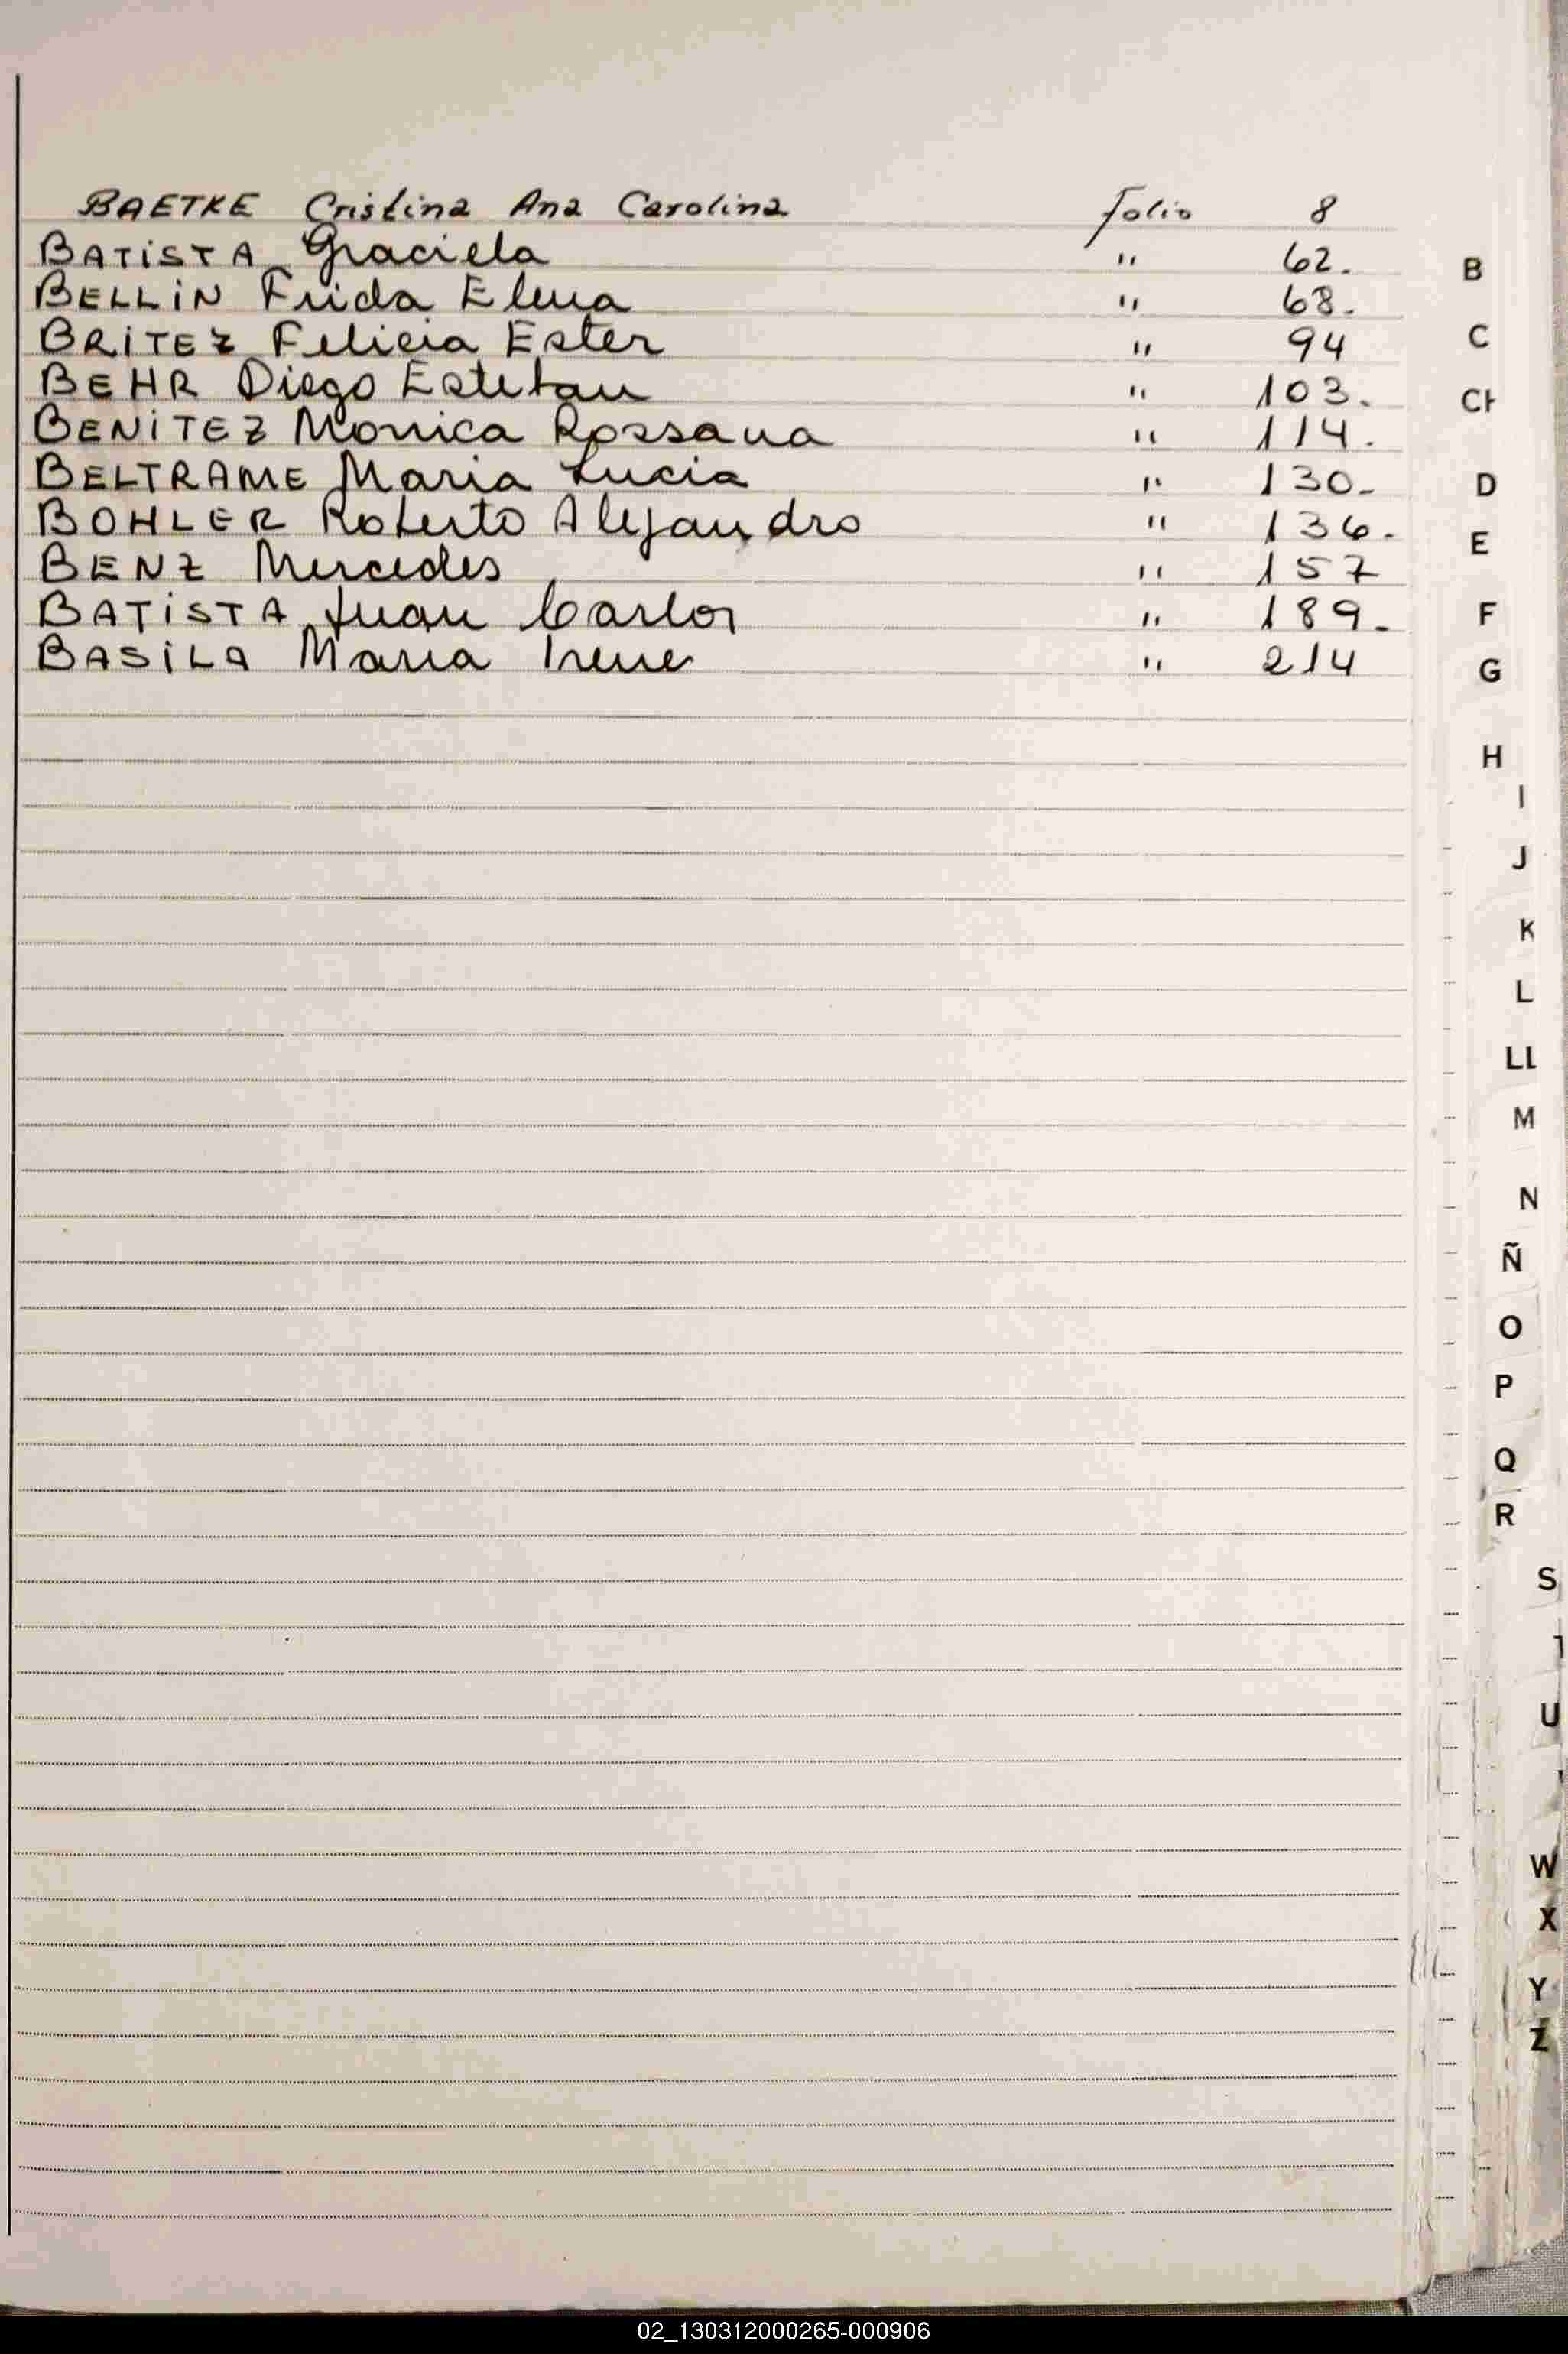 BAETKE Cristina Ana Carolina folio 8
BATISTA Graciela " 62.
BELLIN Frida Elena " 68.
BRITEZ Felicia Ester " 94
BEHR Diego Esteban " 103.
BENITEZ Monica Rossana " 114.
BELTRAME Maria Lucia " 130.
BOHLER Roberto Alejandro " 136.
BENZ Mercedes " 157
BATISTA Juan Carlos " 189.
BASILA Maria Irene " 214
B
C
CH
D
E
F
G
H
I
J
K
L
LL
M
N
Ñ
O
P
Q
R
S
U
W
X
Y
Z
02_130312000265-000906